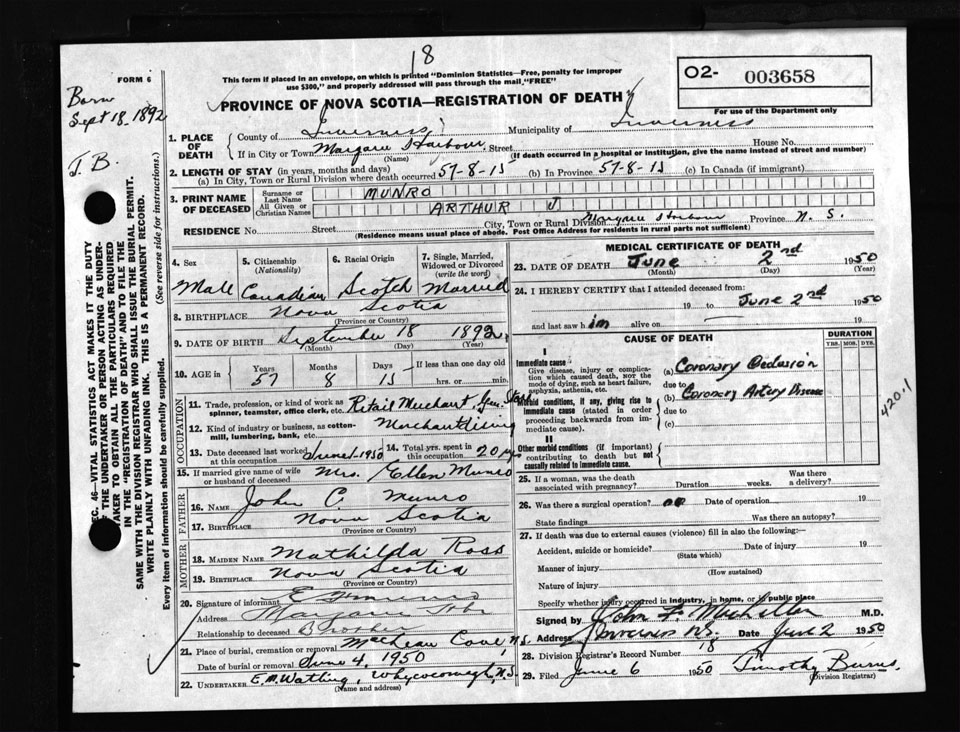 18
FORM 6
This form if placed in an envelope, on which is printed "Dominion Statistics—Free, penalty for improper
use $300," and properly addressed will pass through the mail "FREE"
O2- 003658
For use of the Department only
Born
Sept 18, 1892
J. B.
PROVINCE OF NOVA SCOTIA—REGISTRATION OF DEATH
1. PLACE OF DEATH
County of Inverness Municipality of Inverness
If in City or Town Margaree Harbour Street House No.
(Name) (If death occurred in a hospital or institution, give the name instead of street and number)
2. LENGTH OF STAY (in years, months and days)
(a) In City, Town or Rural Division where death occurred 57-8-15 (b) In Province 57-8-15 (c) In Canada (if immigrant)
3. PRINT NAME OF DECEASED
Surname or Last Name MUNRO
All Given or Christian Names ARTHUR J
RESIDENCE No. Street City, Town or Rural Division Margaree Harbour Province N. S.
(Residence means usual place of abode. Post Office Address for residents in rural parts not sufficient)
4. Sex
Male
5. Citizenship (Nationality)
Canadian
6. Racial Origin
Scotch
7. Single, Married, Widowed or Divorced (write the word)
Married
8. BIRTHPLACE Nova Scotia
(Province or Country)
9. DATE OF BIRTH September 18 1892
(Month) (Day) (Year)
10. AGE in
Years Months Days If less than one day old
57 8 15 hrs. or min.
OCCUPATION
11. Trade, profession, or kind of work as spinner, teamster, office clerk, etc. Retail Merchant, Gen. Store
12. Kind of industry or business, as cotton-mill, lumbering, bank, etc. Merchantdising
13. Date deceased last worked at this occupation June 1, 1950
14. Total yrs. spent in this occupation 20 yrs
15. If married give name of wife or husband of deceased Mrs. Ellen Munro
FATHER
16. NAME John C. Munro
17. BIRTHPLACE Nova Scotia
(Province or Country)
MOTHER
18. MAIDEN NAME Mathilda Ross
19. BIRTHPLACE Nova Scotia
(Province or Country)
20. Signature of informant E Munro
Address Margaree Hbr
Relationship to deceased Brother
21. Place of burial, cremation or removal MacLean Cove, N.S.
Date of burial or removal June 4, 1950
22. UNDERTAKER E. M. Watling, Whycocomagh, N.S.
(Name and address)
MEDICAL CERTIFICATE OF DEATH
23. DATE OF DEATH June 2nd 1950
(Month) (Day) (Year)
24. I HEREBY CERTIFY that I attended deceased from
19 to June 2nd 1950
and last saw him alive on 19
CAUSE OF DEATH
DURATION
YRS. MOS. DYS.
I
Immediate cause—
Give disease, injury or complication which caused death, not the mode of dying, such as heart failure, asphyxia, asthenia, etc.
(a) Coronary Occlusion
due to
Morbid conditions, if any, giving rise to immediate cause (stated in order proceeding backwards from immediate cause).
(b) Coronary Artery Disease
due to
(c)
II
Other morbid conditions (if important) contributing to death but not causally related to immediate cause.
420.1
25. If a woman, was the death associated with pregnancy? Duration weeks. Was there a delivery?
26. Was there a surgical operation? no Date of operation 19
State findings Was there an autopsy?
27. If death was due to external causes (violence) fill in also the following:—
Accident, suicide or homicide? Date of injury 19
(State which)
Manner of injury
(How sustained)
Nature of injury
Specify whether injury occurred in industry, in home, or in public place
Signed by John F. M.D.
Address Inverness N.S. Date June 2 1950
28. Division Registrar's Record Number 18
29. Filed June 6 1950 Timothy Burns
(Division Registrar)
SEC. 46—VITAL STATISTICS ACT MAKES IT THE DUTY
OF THE UNDERTAKER OR PERSON ACTING AS UNDER-
TAKER TO OBTAIN ALL THE PARTICULARS REQUIRED
IN THE "REGISTRATION OF DEATH" AND TO FILE THE
SAME WITH THE DIVISION REGISTRAR WHO SHALL ISSUE THE BURIAL PERMIT.
WRITE PLAINLY WITH UNFADING INK. THIS IS A PERMANENT RECORD.
Every item of information should be carefully supplied. (See reverse side for instructions.)